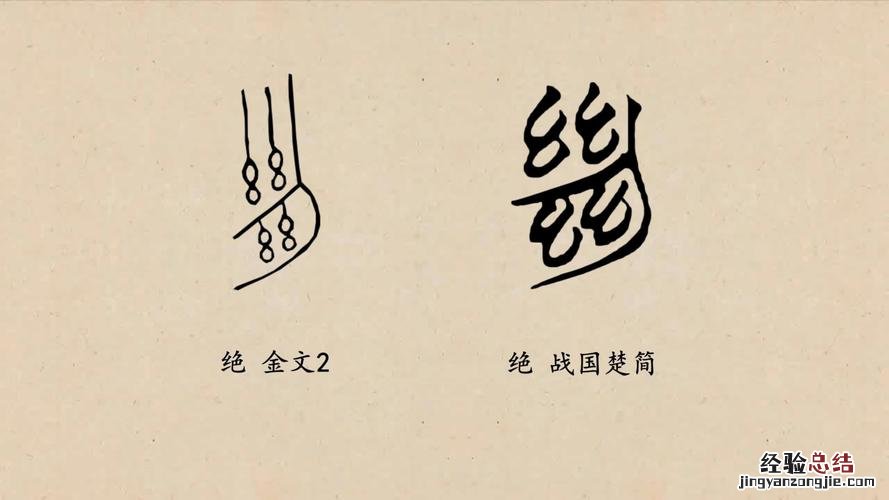 绝 金文2
绝 战国楚简
经验总结
jingyanzongjie.com